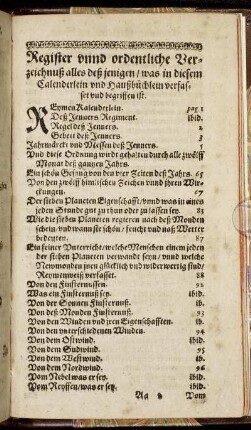 Register vnnd ordentliche Ver-
zeichnuß alles deß jenigen / was in diesem
Calenderlein vnd Haußbüchlein verfas-
set vnd begriffen ist.
REymenKalenderlein. pag 1
Deß Jenners Regiment. ibid.
Regel deß Jenners. 2
Gebett deß Jenners. 3
Jahrmärckt vnd Messen deß Jenners. 5
Vnd diese Ordnung wirdt gehalten durch alle zwölff
Monat deß gantzen Jahrs.
Ein schön Gesang von den vier Zeiten deß Jahrs. 65
Von den zwölff himlischen Zeichen vnd ihren Wir-
ckungen. 67
Der sieben Planeten Eigenschafft / vnd was in eines
jeden Stunde gut zu thun oder zu lassen sey. 83
Wie die sieben Planeten regieren nach deß Monden
schein / vnd wann sie schön / feucht vnd naß Wetter
bedeuten. 87
Ein feiner Vnterricht / welche Menschen einem jeden
der sieben Planeten verwandt seyn / vnnd welche
Newmonden jnen glücklich vnd widerwertig sind
Reymenweiß verfasset. 88
Von den Finsternussen. 92
Was ein Finsternuß sey. ibid.
Von der Sonnen Finsternuß. ib.
Von deß Monden Finsternuß. 93
Von den Winden vnd jren Eigenschafften. ib.
Von den vnterschiedenen Winden. 94
Von dem Ostwind. ibid.
Von dem Sudwind. 95
Von dem Westwind. ib.
Von dem Nordwind. 96
Vom Nebel was er sey. ibid.
Vom Reyffen / was er sey. ibid.
Aa Vom